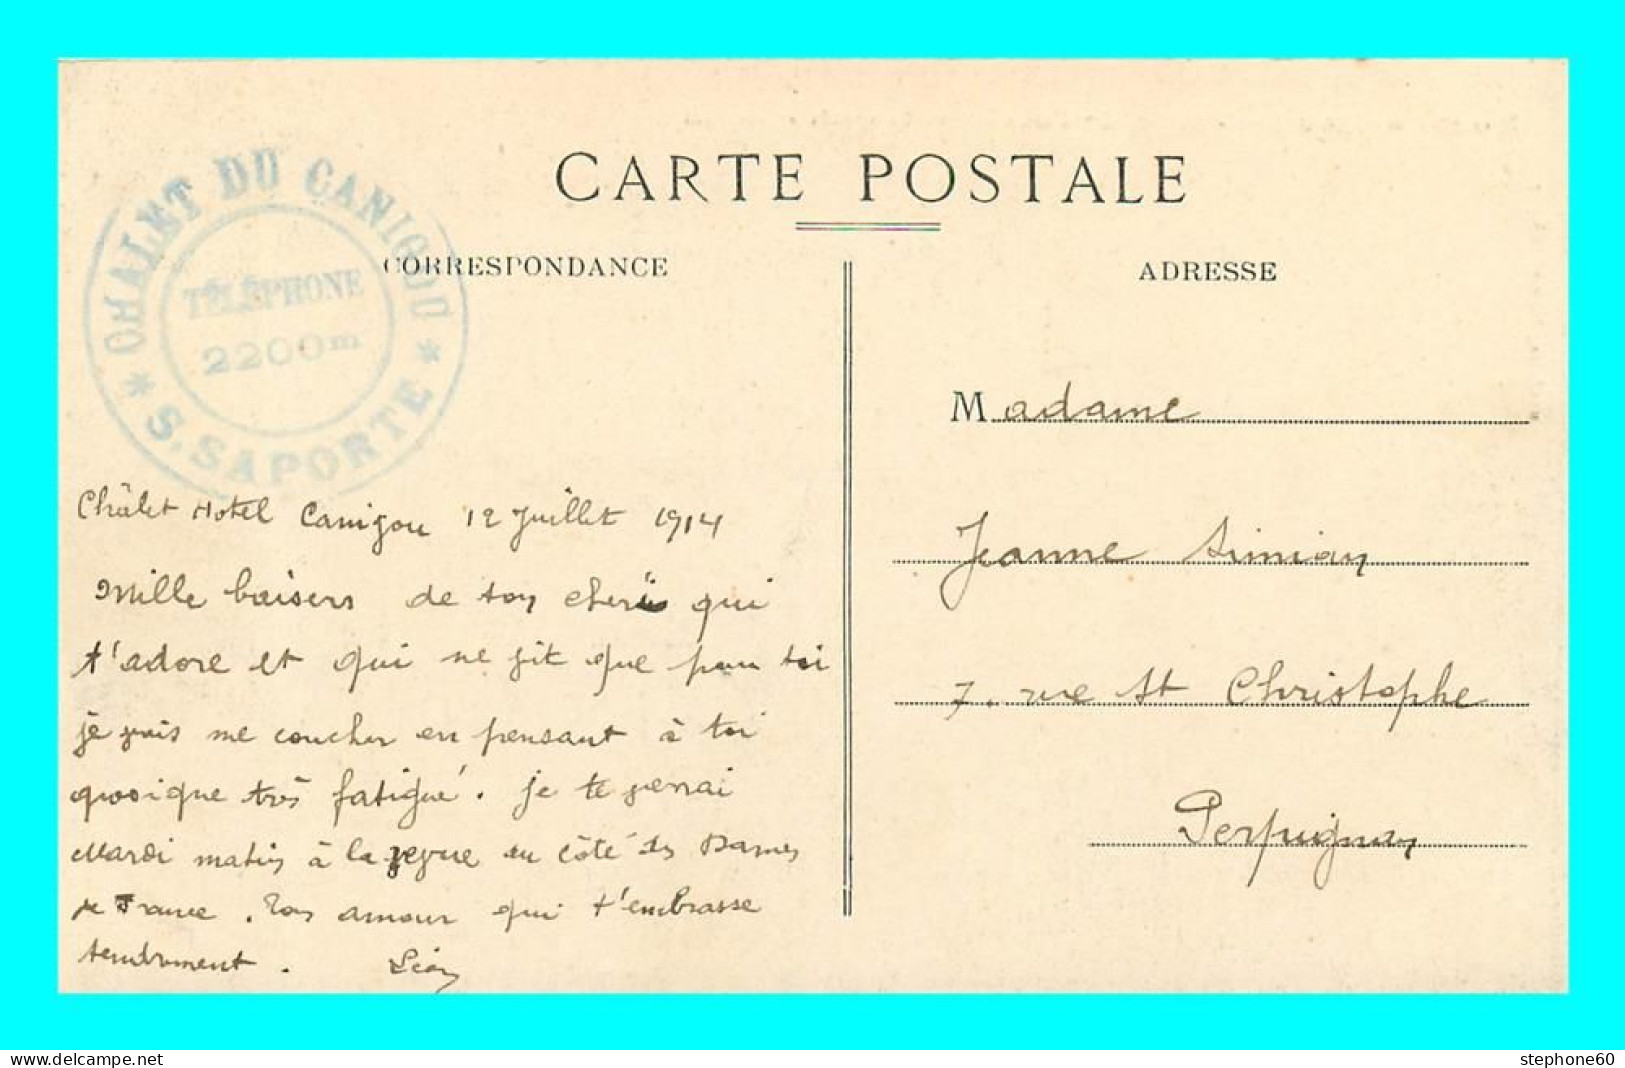 CARTE POSTALE
CHALET DU CANIGOU
TÉLÉPHONE
2200m
* S. SAPORTE *
CORRESPONDANCE
Châlet Hotel Canigou 12 Juillet 1914
Mille baisers de ton cheri qui
t'adore et qui ne vit que pour toi
je vais me coucher en pensant à toi
quoique très fatigué. je te verrai
Mardi matin à la revue en côté des Dames
de France. Ton amour qui t'embrasse
tendrement. Léon
ADRESSE
Madame
Jeanne Simian
7. rue St Christophe
Perpignan
delcampe.net
stephone60